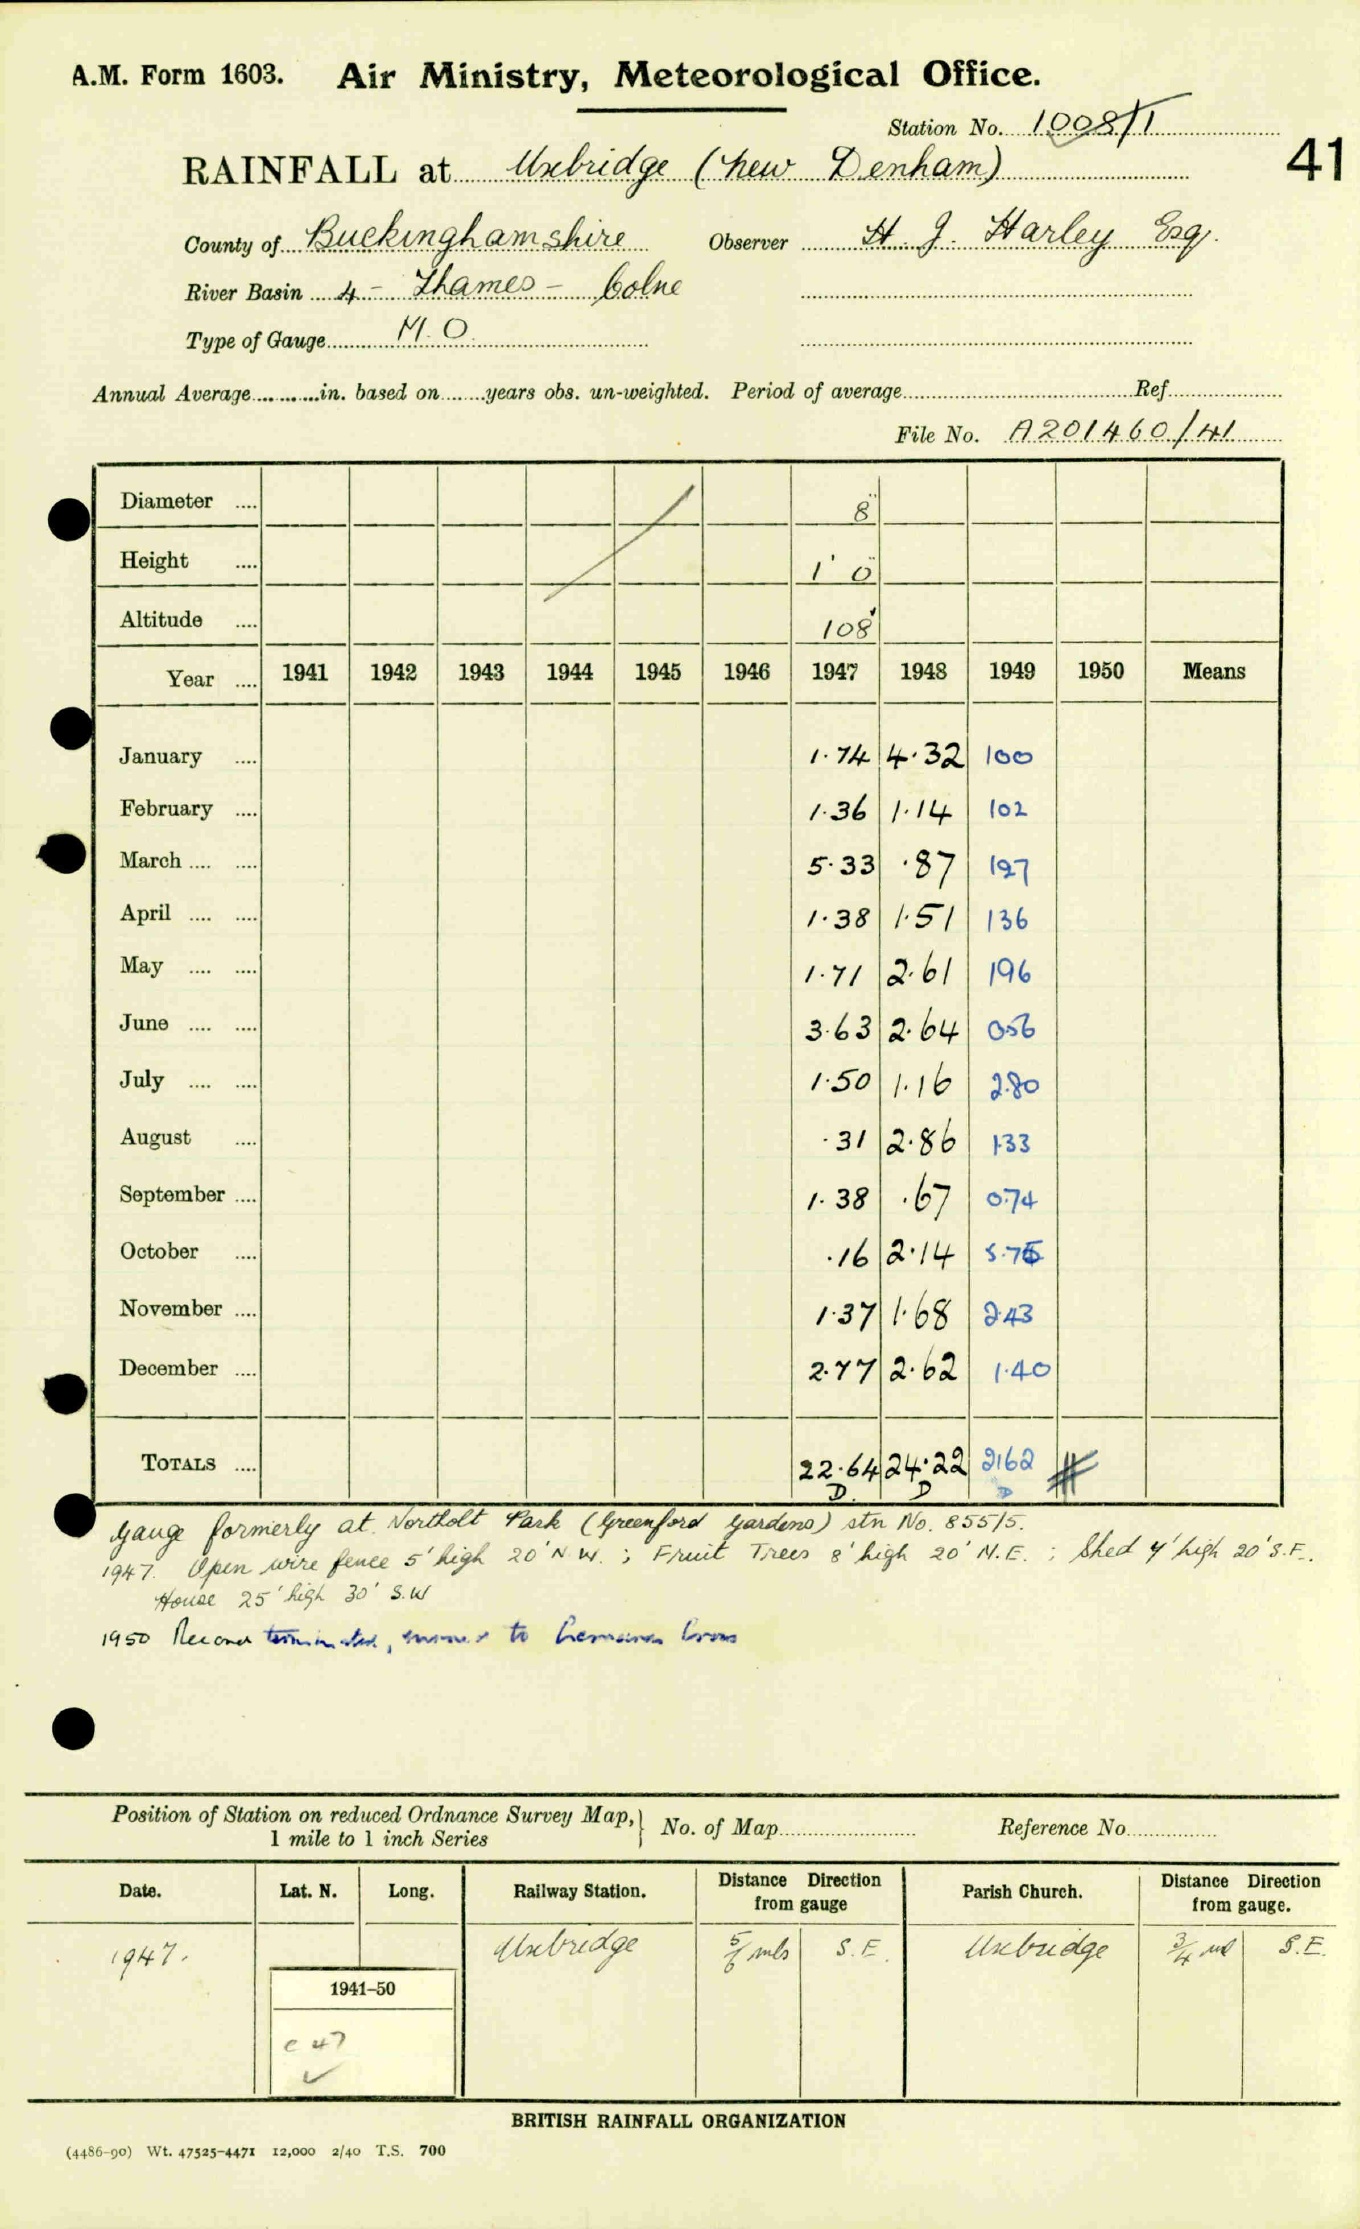 A.M. Form 1603. Air Ministry, Meteorological Office.
Station No. 1008/1
41
RAINFALL at Uxbridge (New Denham)
County of Buckinghamshire Observer H. J. Harley Esq.
River Basin 4 - Thames - Colne
Type of Gauge M.O.
Annual Average..........in. based on........years obs. un-weighted. Period of average..........Ref..........
File No. A201460/41
Diameter .... 8"
Height .... 1' 0"
Altitude .... 108'
Year .... 1941 1942 1943 1944 1945 1946 1947 1948 1949 1950 Means
January .... 1.74 4.32 100
February .... 1.36 1.14 102
March .... .... 5.33 .87 127
April .... .... 1.38 1.51 136
May .... .... 1.71 2.61 196
June .... .... 3.63 2.64 056
July .... .... 1.50 1.16 2.80
August .... .31 2.86 1.33
September .... 1.38 .67 0.74
October .... .16 2.14 5.75
November .... 1.37 1.68 2.43
December .... 2.77 2.62 1.40
TOTALS .... 22.64 24.22 2162
D D D
Gauge formerly at Northolt Park (Greenford Gardens) stn No. 855/5.
1947. Open wire fence 5' high 20' N.W. ; Fruit Trees 8' high 20' N.E. ; Shed 7' high 20' S.E.
House 25' high 30' S.W
1950 Record terminated, to Cross
Position of Station on reduced Ordnance Survey Map, } No. of Map.......... Reference No..........
1 mile to 1 inch Series
Date. Lat. N. Long. Railway Station. Distance Direction from gauge Parish Church. Distance Direction from gauge.
1947. Uxbridge 5/6 mls S.E. Uxbridge 3/4 ml S.E.
1941–50
c 47
BRITISH RAINFALL ORGANIZATION
(4486-90) Wt. 47525-4471 12,000 2/40 T.S. 700